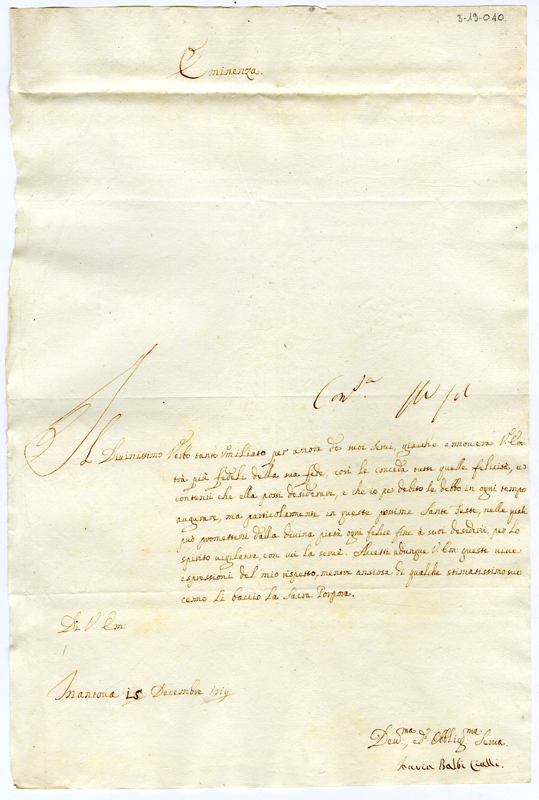 3-19-040
Eminenza.
Il Divinissimo Verbo tanto umiliato per amore de suoi Servi, giacche annovera V. Em
trà più fedeli della sua fede, così le conceda tutte quelle felicità, e
contenti che ella possi desiderare, e che io per debito le debbo in ogni tempo
augurare, ma particolarmente in queste prossime Sante Feste, nelle quali
può promettersi dalla divina pietà ogni felice fine a suoi desiderij, per lo
spirito vigilante con cui la serve. Accetti adunque V. Em. queste vive
espressioni del mio rispetto, mentre ansiosa di qualche stimatissimo suo
cenno li baccio la Sacra Porpora.
Di V. Em:
Mantova 15 Decembre 1719
Devma, ed Obligma Serva
Balbi Cialli.